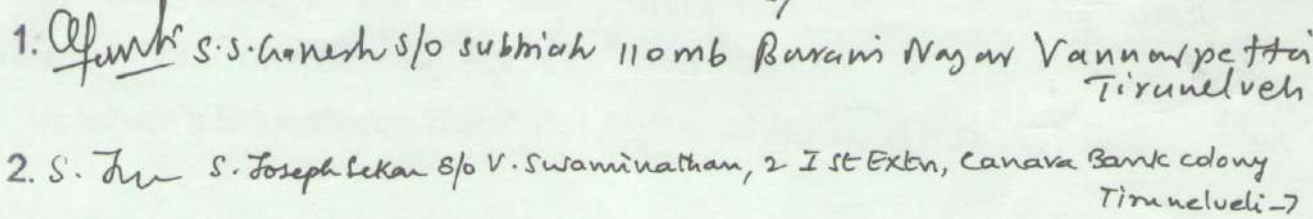 1. S.S.Ganesh S/o Subbiah 110mb Barani Nagar Vannarpettai
Tirunelveli
2. S. S. Joseph Sekar S/o V. Swaminathan, 2 I st Extn, Canara Bank colony
Tirunelveli-7